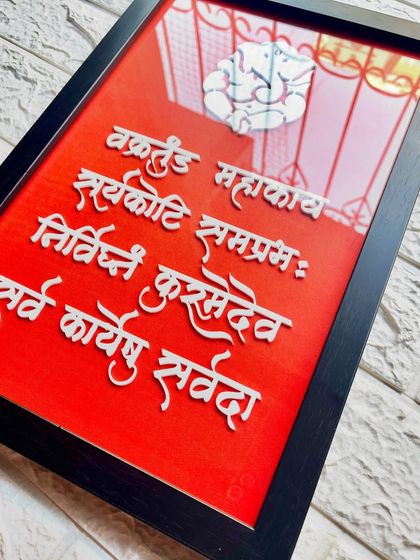 वक्रतुंड महाकाय
सूर्यकोटि समप्रभः
निर्विघ्नं कुरुमेदेव
सर्व कार्येषु सर्वदा